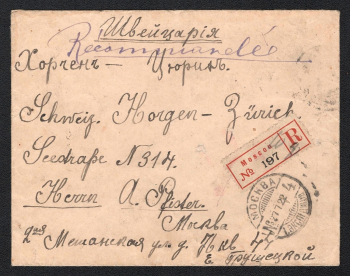 Швейцарія
Recommandée
Хоргенъ - Цюрихъ
Schweiz. Horgen - Zürich.
Seestraße N 314.
Herrn A.
Moskau
R
№ 197
МОСКВА
Москва
2ая Мещанская ул. д кв.
Е. Грушецкой